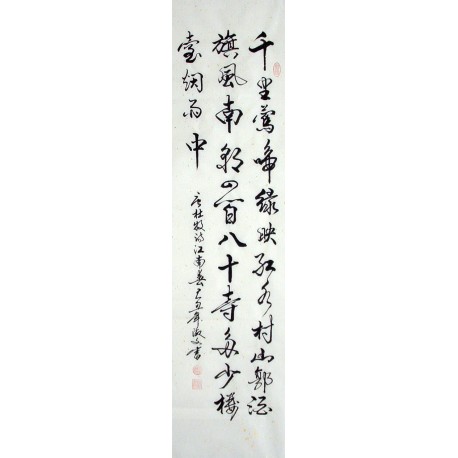 千里鶯啼綠映紅水村山郭酒
旗風南朝四百八十寺多少樓
臺烟雨中
唐杜牧詩江南春 年 書